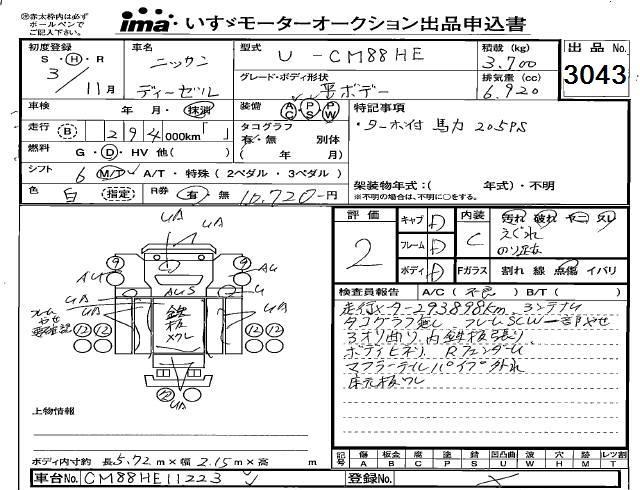 ※赤太枠内は必ず
ボールペンで
ご記入下さい。
ima いすゞモーターオークション出品申込書
初度登録 S・H・R 3/11月
車名 ニッサン ディーゼル
型式 U-CM88HE
グレード・ボディ形状 平ボデー
積載(kg) 3,700
排気量(cc) 6,920
出品 No. 3043
車検 年・月・抹消
装備 AC PS PW
特記事項
・ターボ付 馬力 205PS
走行 B 294000km
タコグラフ 有・無 別体 ( 年 月)
燃料 G・D・HV 他( )
シフト 6 M/T・A/T・特殊(2ペダル・3ペダル)
架装物年式:( 年式)・不明
※不明の場合は、不明に○をする。
色 白 指定 R券 有・無 10,720-円
評価 2
キャブ D
フレーム D
ボディ D
内装 C
汚れ 破れ
えぐれ
Fガラス 割れ 線 点傷 イバリ
検査員報告 A/C(不良) B/T( )
走行メーター293898km
タコグラフ無し フレームSCW一部やせ
3方リ曲り 内鉄板張り
ボディヒネリ Rフェンダー
マフラーテールパイプ外れ
UA
UA
9
9
AU
AU
AUS
U
UA
UA
フレーム
やせ
要確認
鉄板
12 12
12 12
12
UA
上物情報
ボディ内寸約 長5.72m×幅2.15m×高 m
記号 傷A 板金B 腐C 塗P 錆S 凹凸曲U 波W 穴H 跡M レツ割T
車台No. CM88HE11223
登録No.